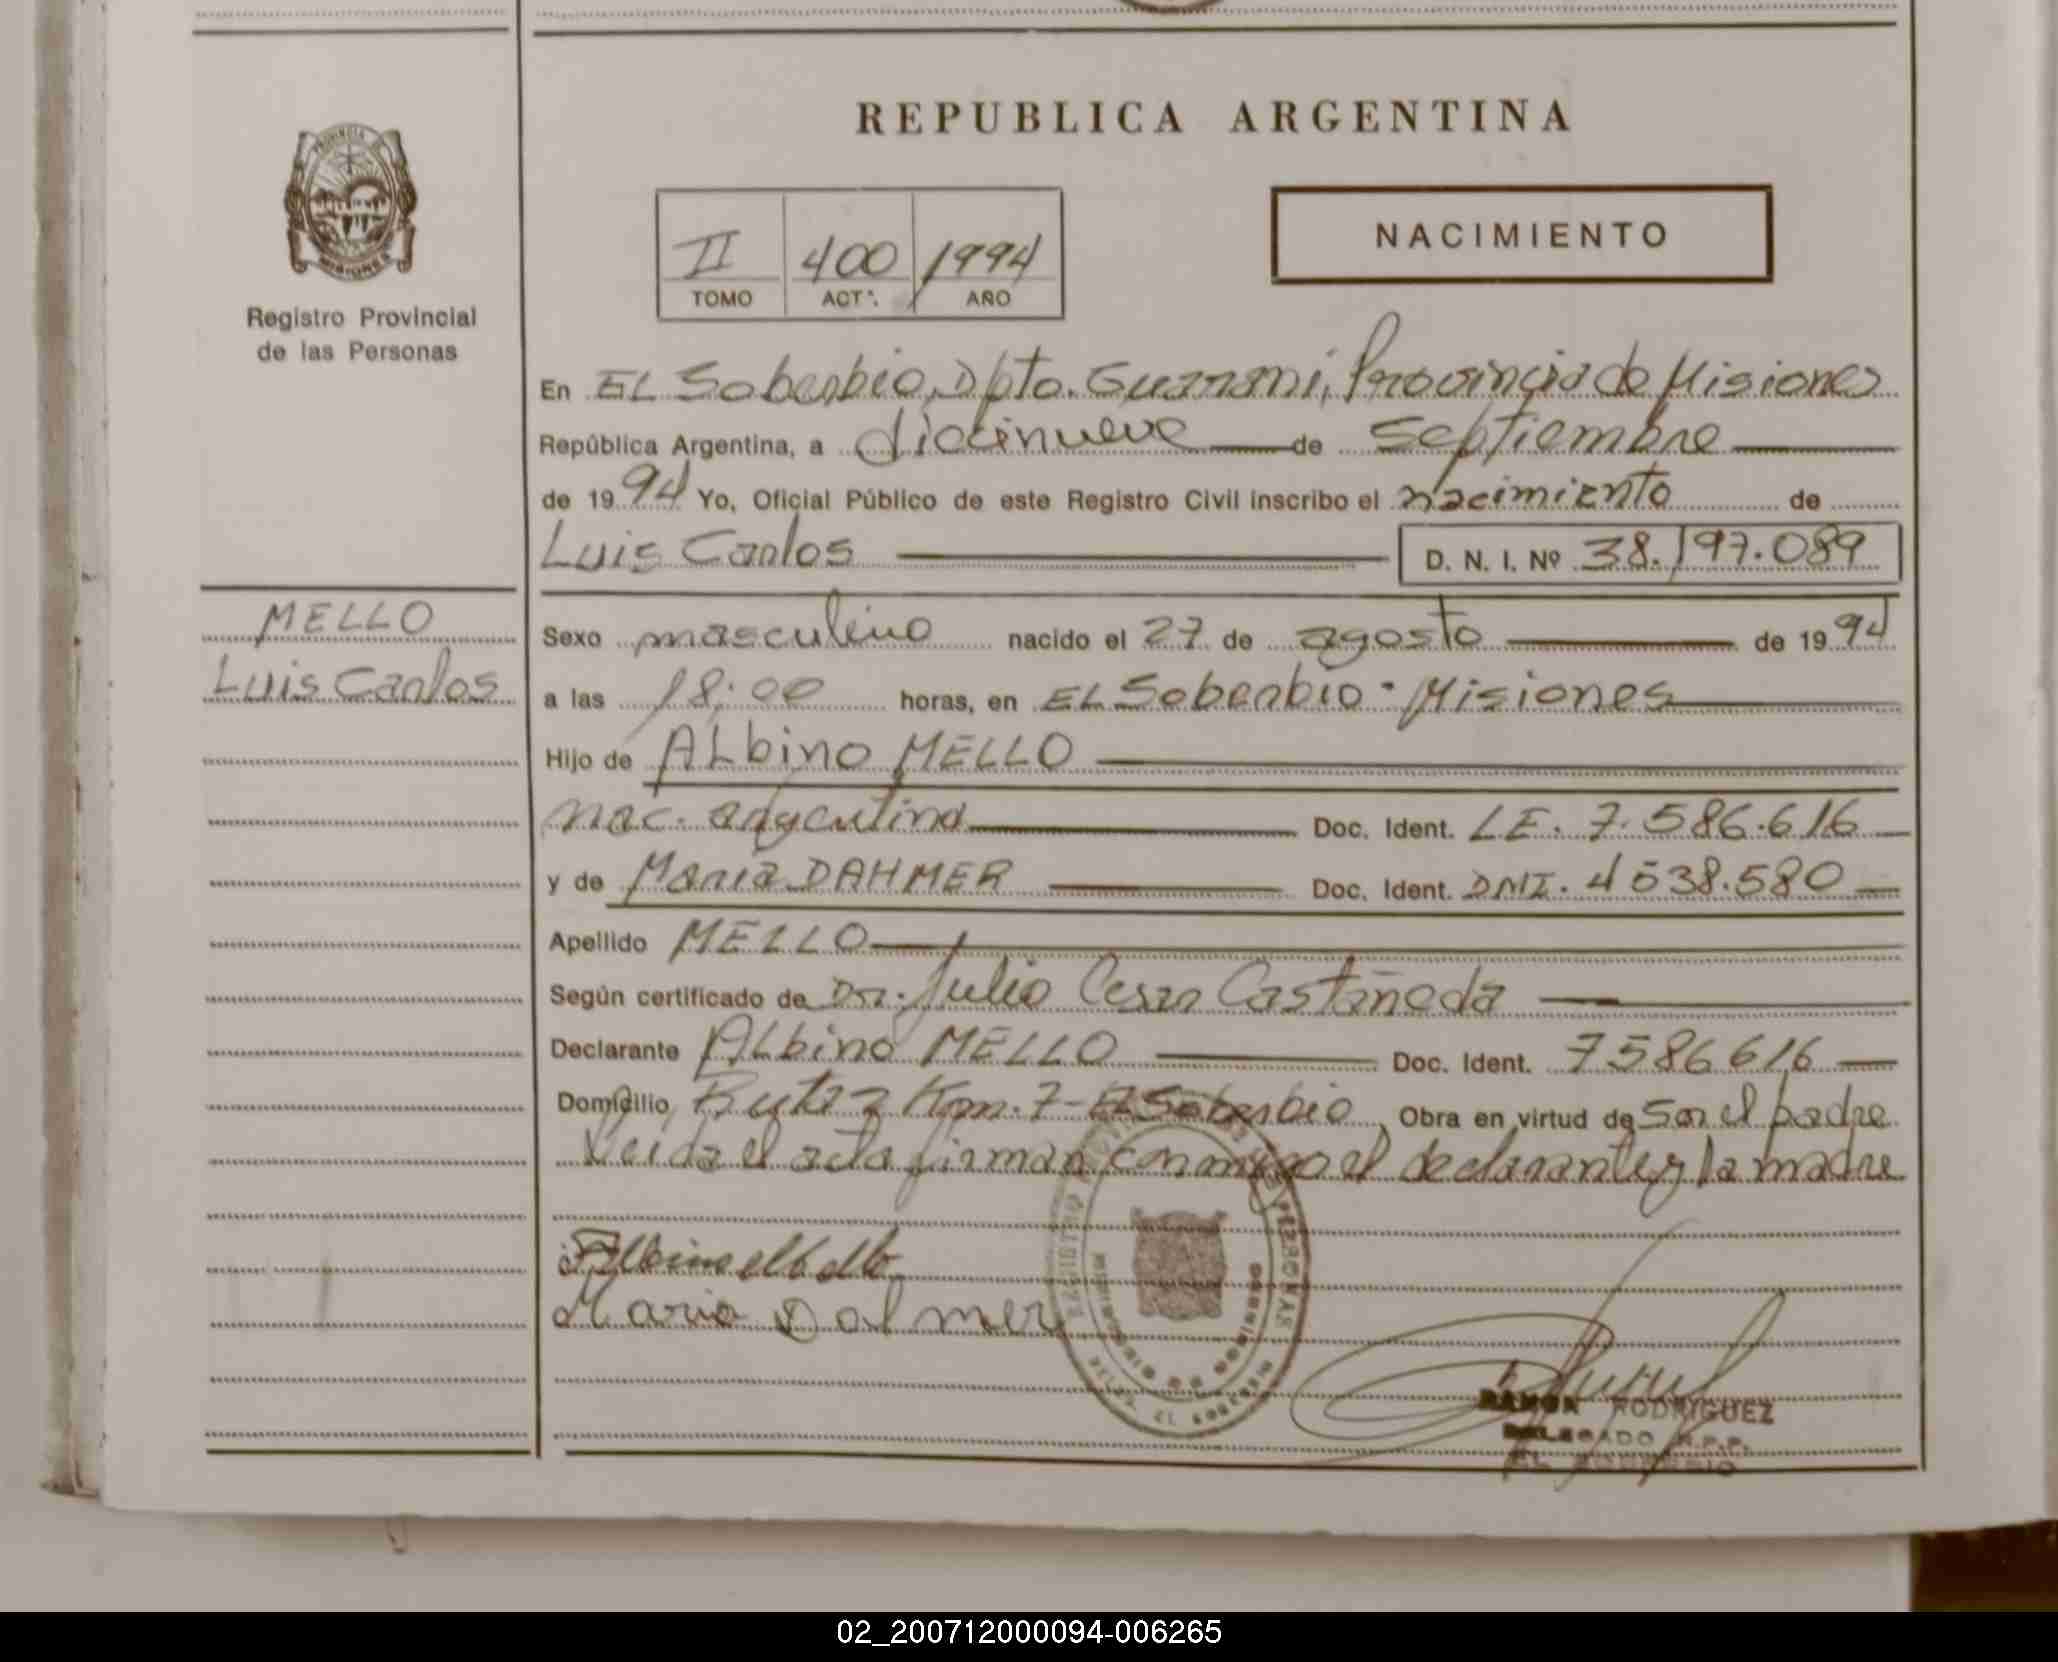 REPUBLICA ARGENTINA
PROVINCIA DE
MISIONES
Registro Provincial
de las Personas
II 400 1994
TOMO ACTª. AÑO
NACIMIENTO
En EL Soberbio, Dpto. Guarani, Provincia de Misiones
República Argentina, a diecinueve de Septiembre
de 1994 Yo, Oficial Público de este Registro Civil inscribo el nacimiento de
Luis Carlos D. N. I. Nº 38.197.089
MELLO
Luis Carlos
Sexo masculino nacido el 27 de agosto de 1994
a las 18:00 horas, en EL Soberbio - Misiones
Hijo de ALbino MELLO
nac. argentina Doc. Ident. LE. 7.586.616
y de Maria DAHMER Doc. Ident. DNI. 4538.580
Apellido MELLO
Según certificado de Dr. Julio Cesar Castañeda
Declarante ALbino MELLO Doc. Ident. 7586616
Domicilio Ruta 2 Km. 7 - El Soberbio Obra en virtud de Ser el padre
Leida el acta firman conmigo el declarante y la madre
Maria Dalmer
RAMON RODRIGUEZ
DELEGADO R.P.P.
EL SOBERBIO
02_200712000094-006265